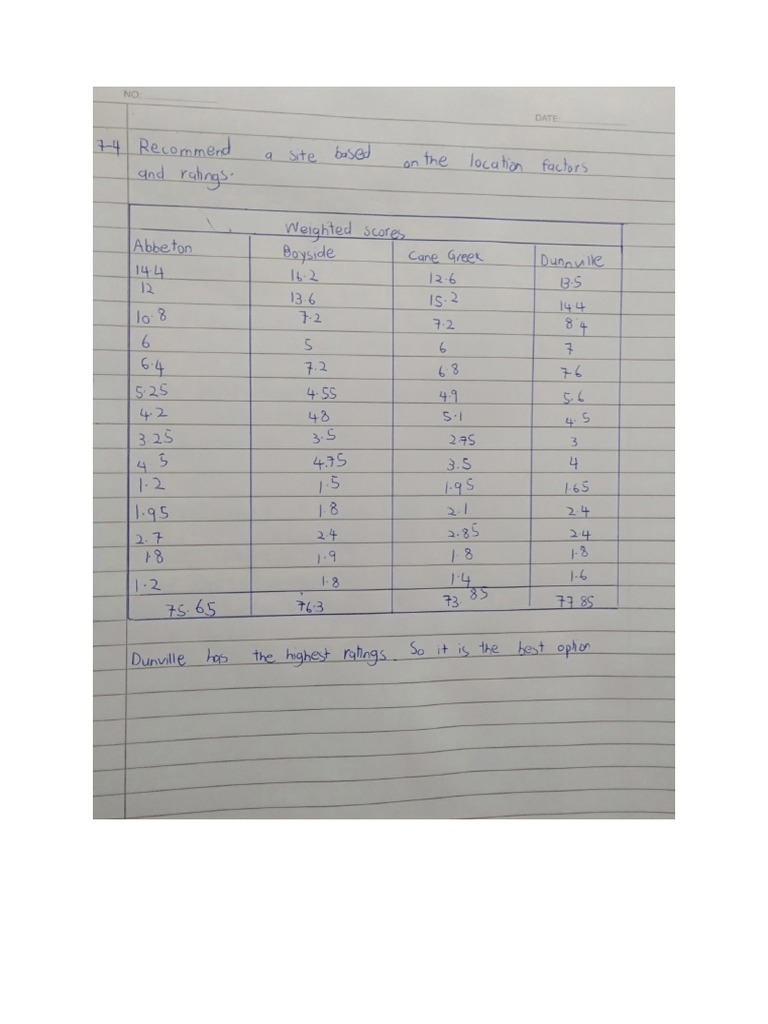 NO:
DATE:
7-4 Recommend a site based on the location factors
and ratings.
Weighted scores
Abbeton Bayside Cane Greek Dunnville
14.4 16.2 12.6 13.5
12 13.6 15.2 14.4
10.8 7.2 7.2 8.4
6 5 6 7
6.4 7.2 6.8 7.6
5.25 4.55 4.9 5.6
4.2 4.8 5.1 4.5
3.25 3.5 2.75 3
4.5 4.75 3.5 4
1.2 1.5 1.95 1.65
1.95 1.8 2.1 2.4
2.7 2.4 2.85 2.4
1.8 1.9 1.8 1.8
1.2 1.8 1.4 1.6
75.65 76.3 73.85 77.85
Dunville has the highest ratings. So it is the best option